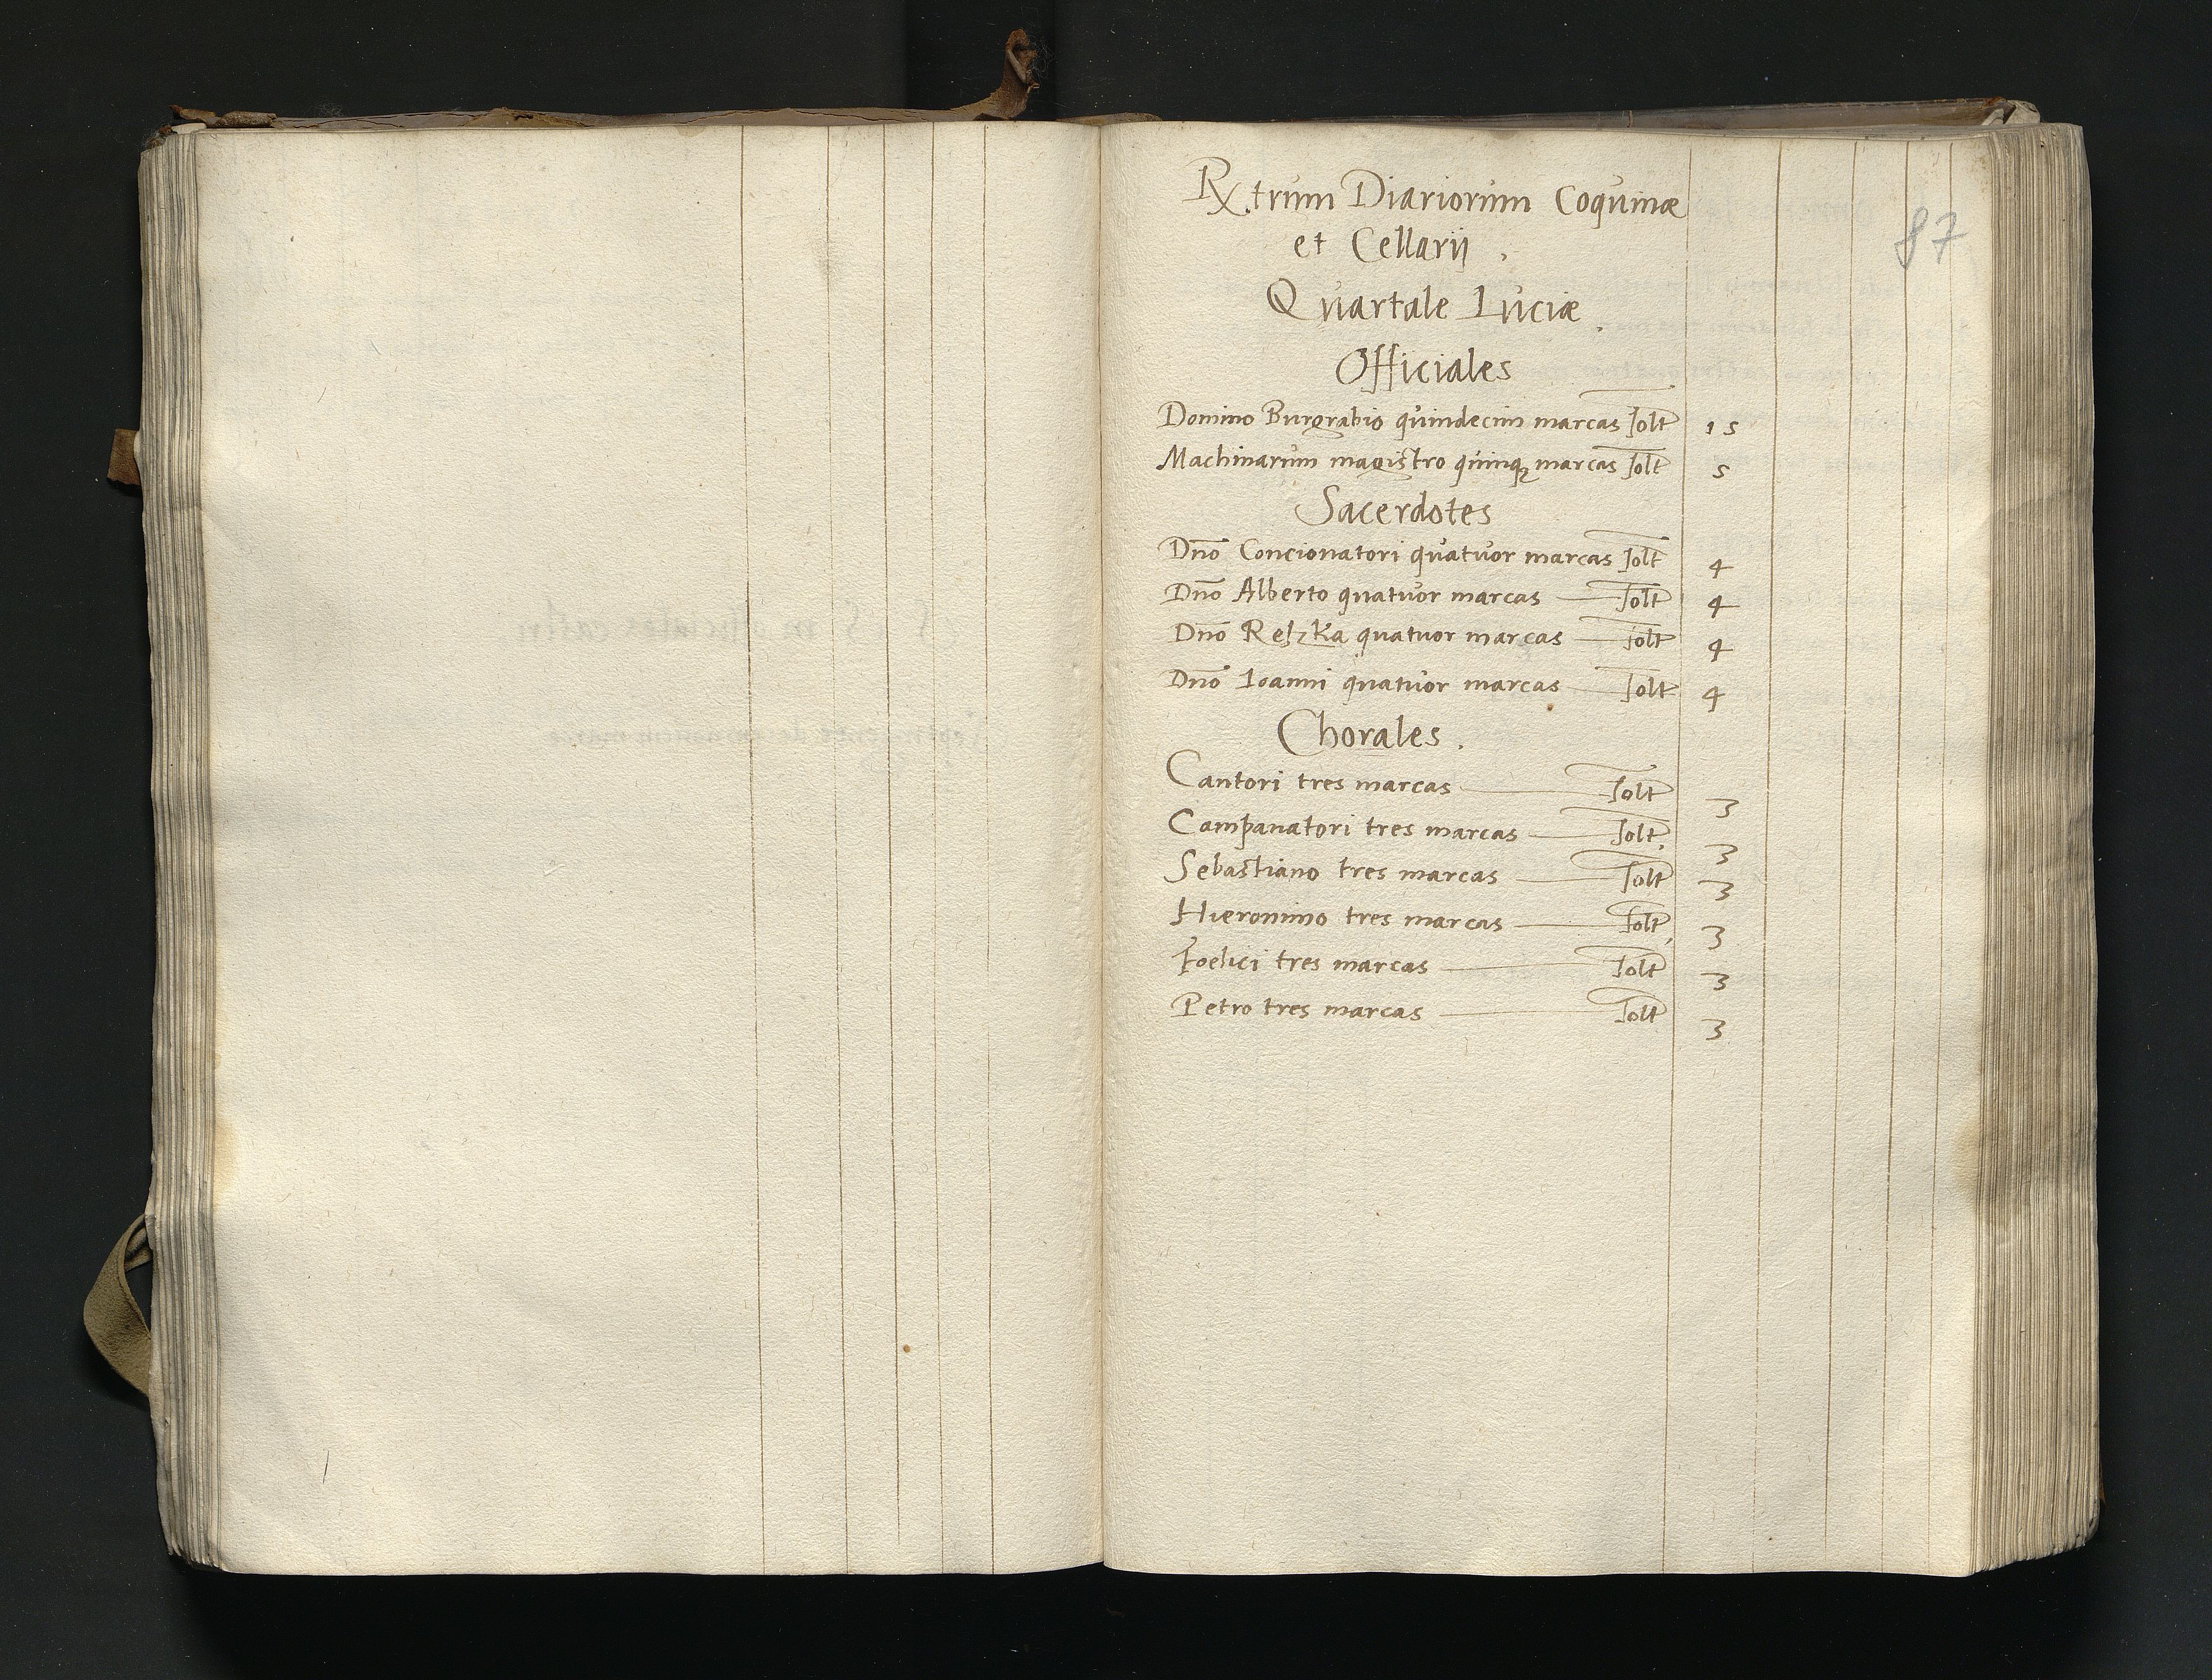 Rx.trum Diariorum Coquinæ
87
et Cellarij .
Quartale Luciæ .
Officiales
Domino Burgrabio quindecim marcas solt 15
Machinarum magistro quinqꝫ marcas solt 5
Sacerdotes
Dn̄o Concionatori quatuor marcas solt 4
Dn̄o Alberto quatuor marcas solt 4
Dn̄o Reszka quatuor marcas solt 4
Dn̄o Ioanni quatuor marcas solt 4
Chorales .
Cantori tres marcas solt 3
Campanatori tres marcas solt 3
Sebastiano tres marcas solt 3
Hieronimo tres marcas solt 3
Foelici tres marcas solt 3
Petro tres marcas solt 3